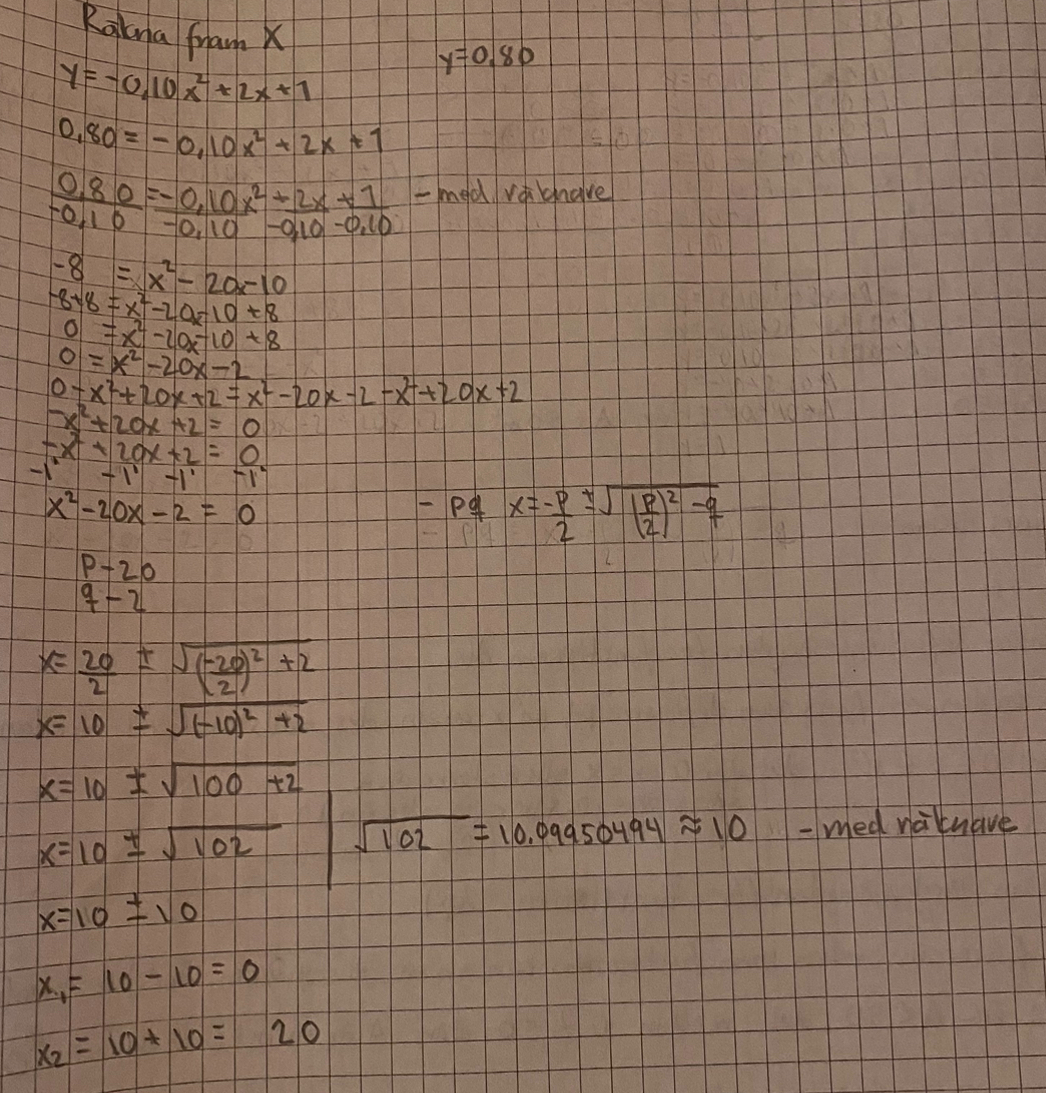 Räkna fram X
y=0,80
y=-0,10x²+2x+1
0,80=-0,10x²+2x+1
0,80/-0,10 = -0,10x²/-0,10 + 2x/-0,10 + 1/-0,10 - med räknare
-8 = x²-20x-10
-8+8=x²-20x-10+8
0 =x²-20x-10+8
0 =x²-20x-2
0-x²+20x+2=x²-20x-2-x²+20x+2
-x²+20x+2=0
-x²/-1 +20x/-1 +2/-1 = 0/-1
x²-20x-2=0 - pq x=-p/2 ± √((p/2)²-q)
p-20
q-2
x=20/2 ± √((-20/2)²+2)
x=10 ± √((-10)²+2)
x=10 ± √(100+2)
x=10 ± √102 | √102 = 10.09950494 ≈ 10 - med räknare
x=10 ± 10
x₁=10-10=0
x₂=10+10= 20